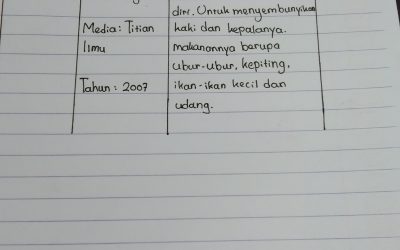 diri. Untuk menyembunyikan
Media: Titian
kaki dan kepalanya.
Ilmu
makanannya berupa
ubur-ubur, kepiting,
Tahun: 2007
ikan-ikan kecil dan
udang.